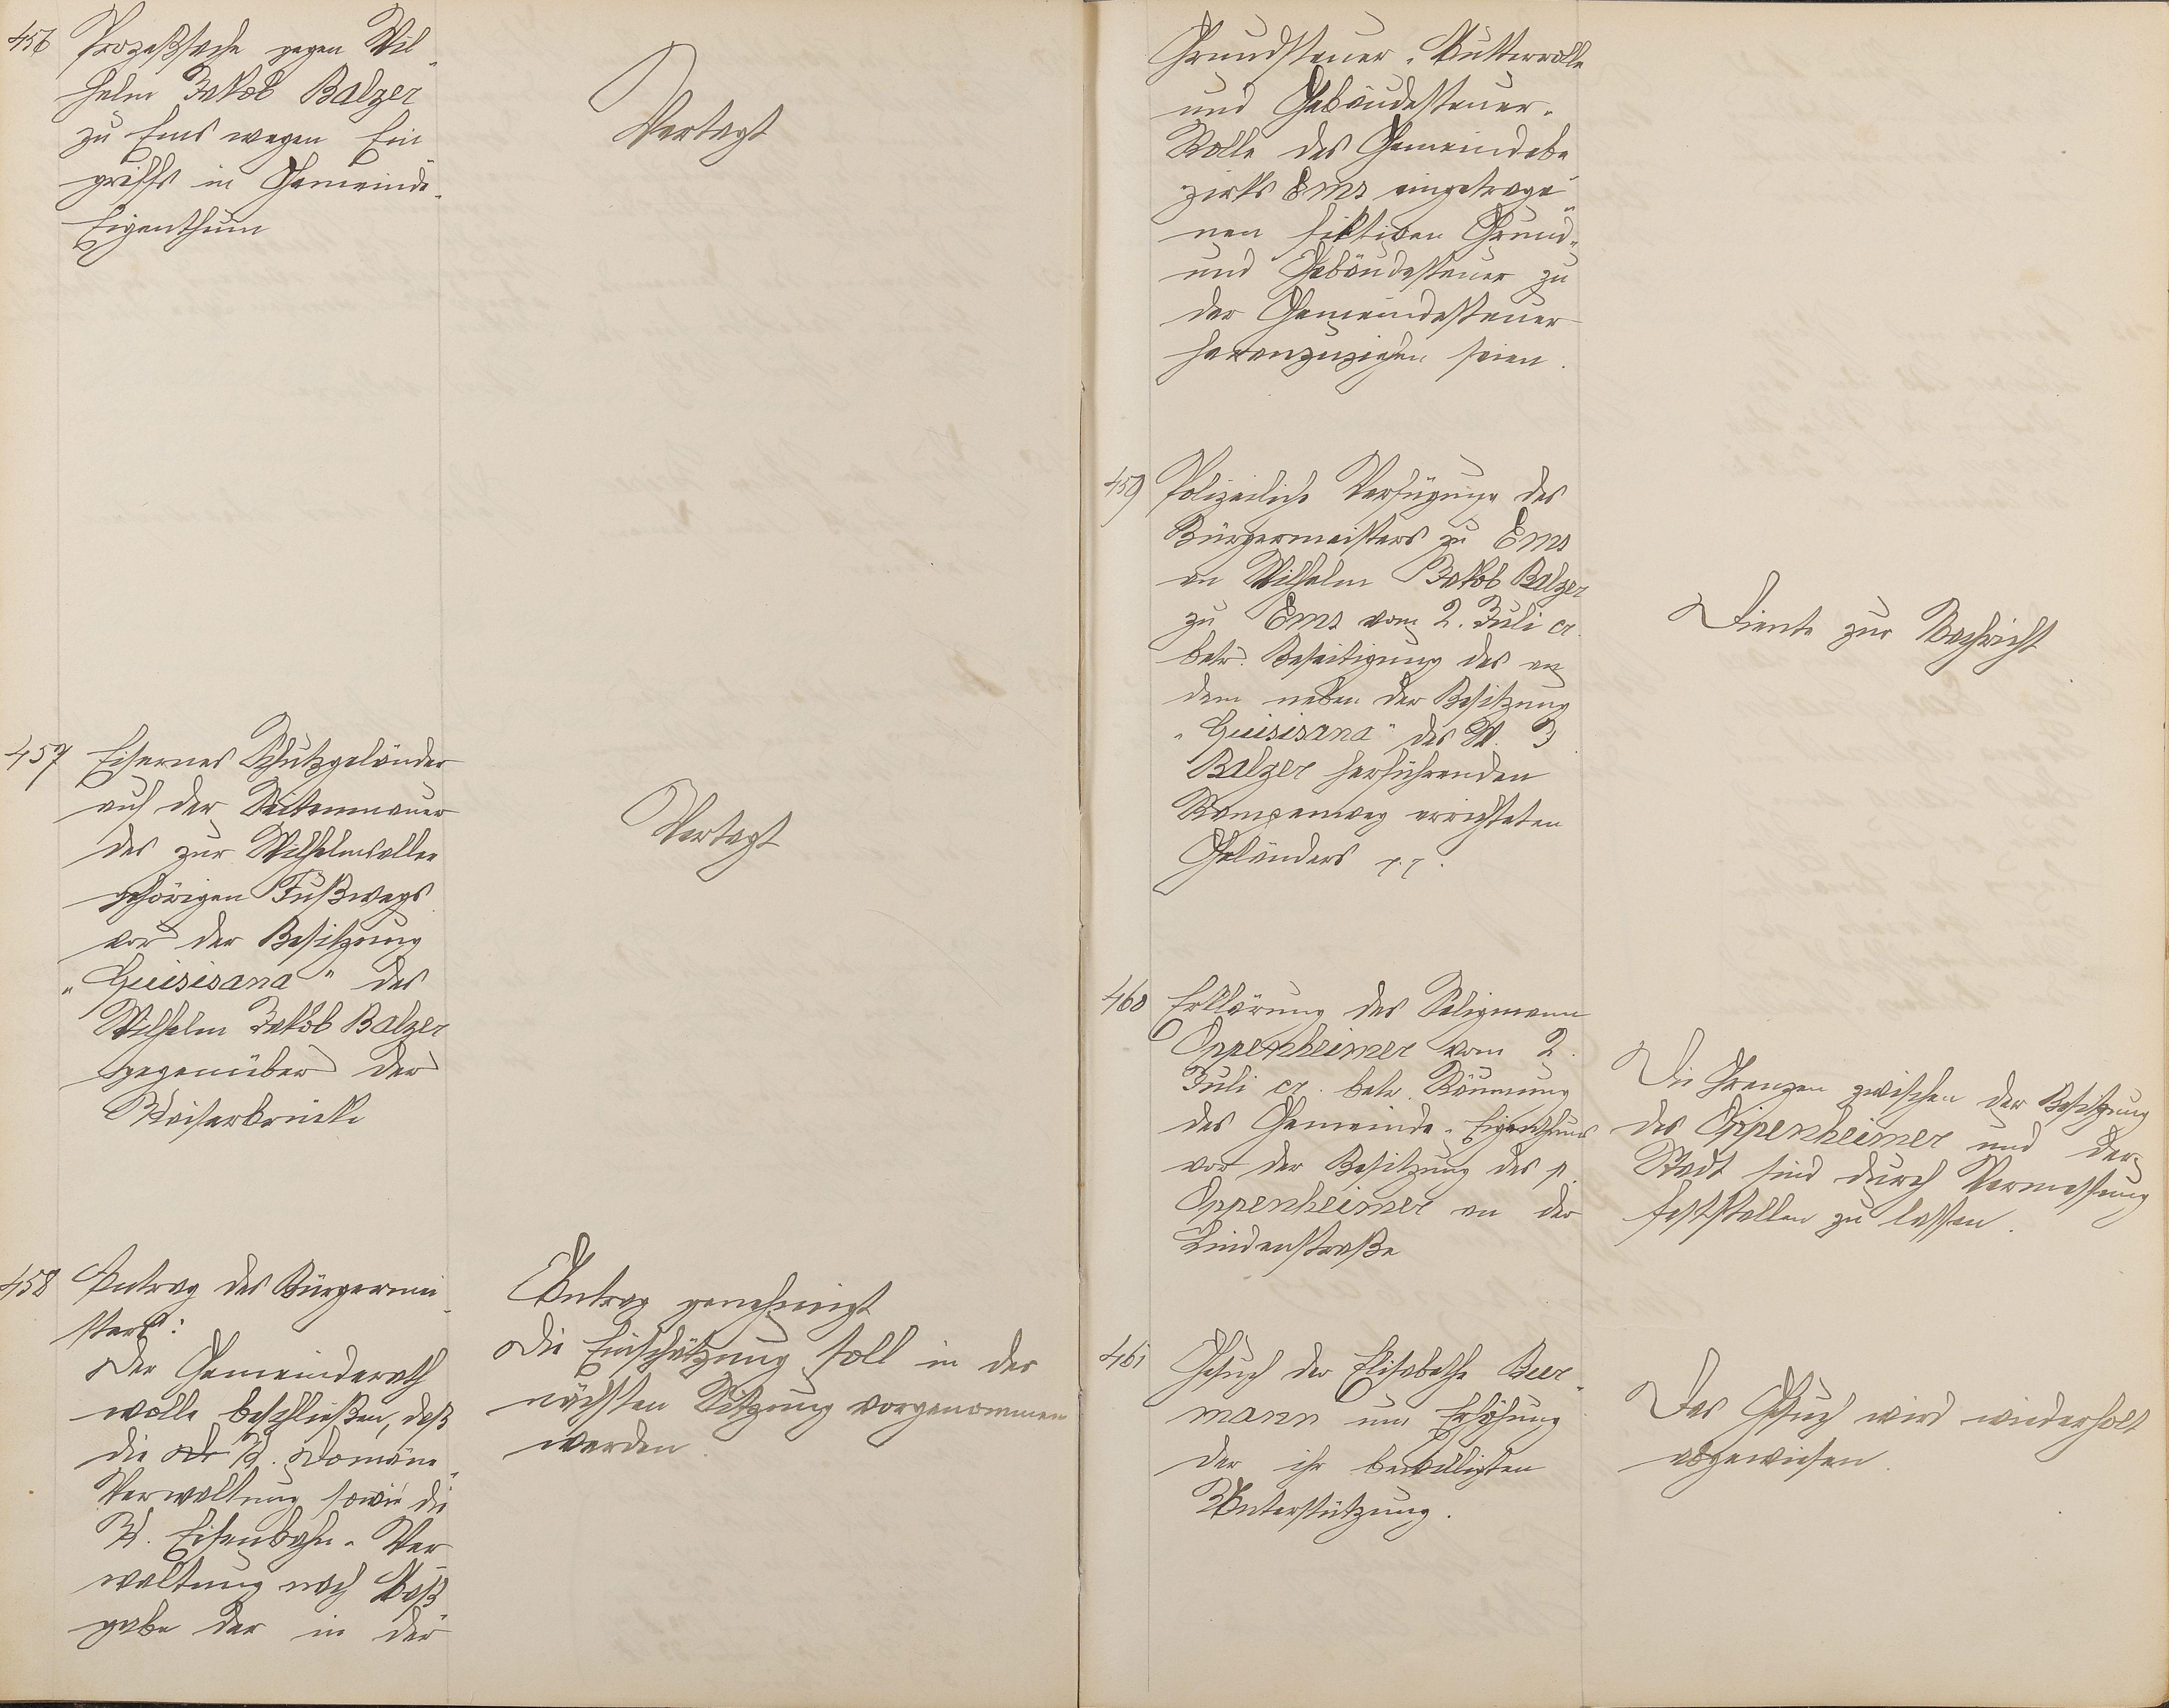 456 Prozeßsache gegen Wil-
helm Jakob Balzer
zu Ems wegen Ein
griffs in Gemeinde-
Eigenthum
Vertagt
457 Eisernes Schutzgeländer
auf der Seitenmauer
des zur Wilhelmsallee
gehörigen Fußwegs
vor der Besitzung
„Guisisana" des
Wilhelm Jakob Balzer
gegenüber der
Kaiserbrücke
Vertagt
458 Antrag des Bürgermei-
sters:
Der Gemeinderath
wolle beschließen, daß
die K. Domäne-
Verwaltung sowie die
K. Eisenbahn-Ver
waltung nach Maß
gabe der in der
Antrag genehmigt
Die Einschätzung soll in der
nächsten Sitzung vorgenommen
werden.
Grundsteuer-Mutterrolle
und Gebäudesteuer-
Rolle des Gemeindebe
zirks Ems eingetrage-
nen fiktiven Grund-
und Gebäudesteuer zu
der Gemeindesteuer
heranzuziehen seien.
459 Polizeiliche Verfügung des
Bürgermeisters zu Ems
an Wilhelm Jakob Balzer
zu Ems vom 2. Juli cr.
betr. Beseitigung des an
dem neben der Besitzung
„Guisisana" des W. J.
Balzer herführenden
Rampenweg errichteten
Geländers pp.
Diente zur Nachricht
460 Erklärung des Seligmann
Oppenheimer vom 2.
Juli cr. betr. Räumung
des Gemeinde-Eigenthums
vor der Besitzung des p.
Oppenheimer an der
Lindenstraße
Die Grenzen zwischen der Besitzung
des Oppenheimer und der
Stadt sind durch Vermessung
feststellen zu lassen.
461 Gesuch der Elisabethe Beer-
mann um Erhöhung
der ihr bewilligten
Unterstützung.
Das Gesuch wird wiederholt
abgewiesen.